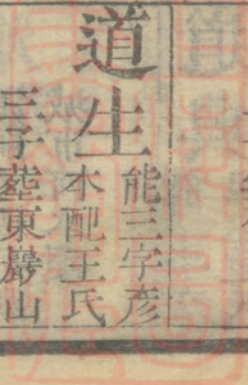 道生
能三字彦
本配王氏
三子塟東巖山